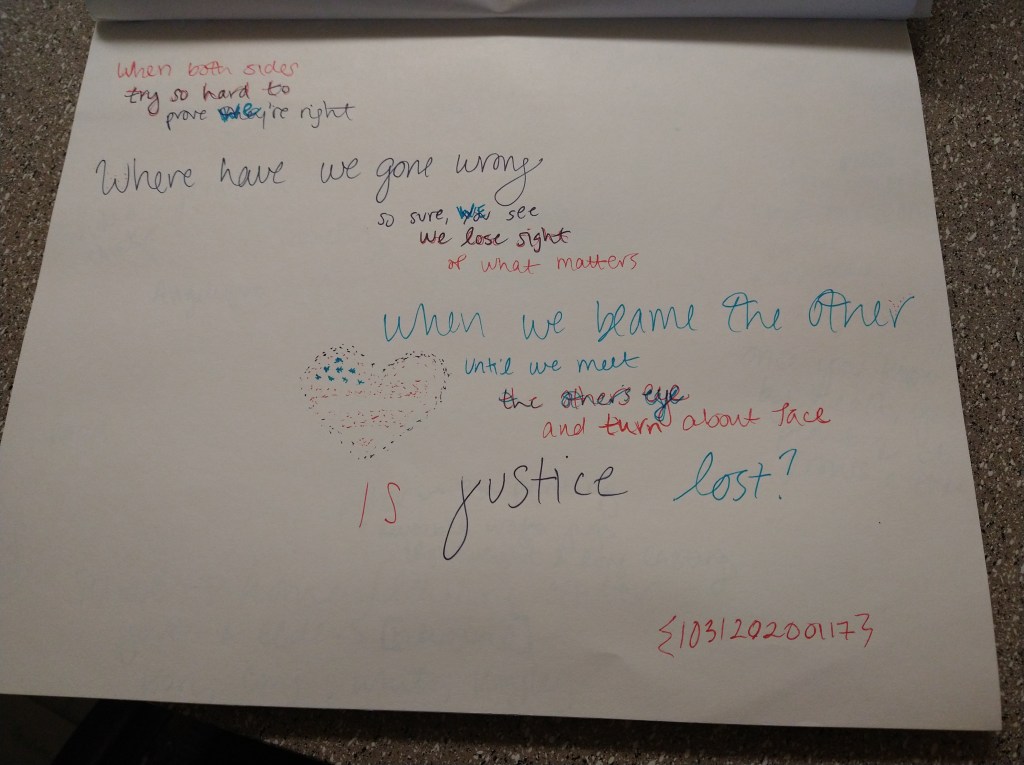 when both sides
try so hard to
prove they're right
Where have we gone wrong
so sure, we see
we lose sight
of what matters
when we blame the other
until we meet
the other's eye
and turn about face
Is justice lost?
{103120200117}